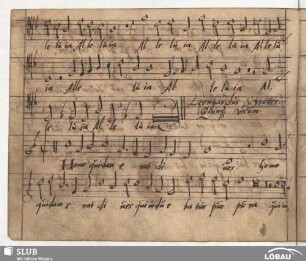 le lu ia Al le lu ia Al le lu ia Al le lu
ia Alle lu ia Al le lu ia Al
Leonhardus Schröter
le lu ia Al le lu ia
Homo quidam e rat di ues homo
quidam e rat di ues qui indue ba tur pur pu ra
SLUB
Wir führen Wissen.
LÖBAU